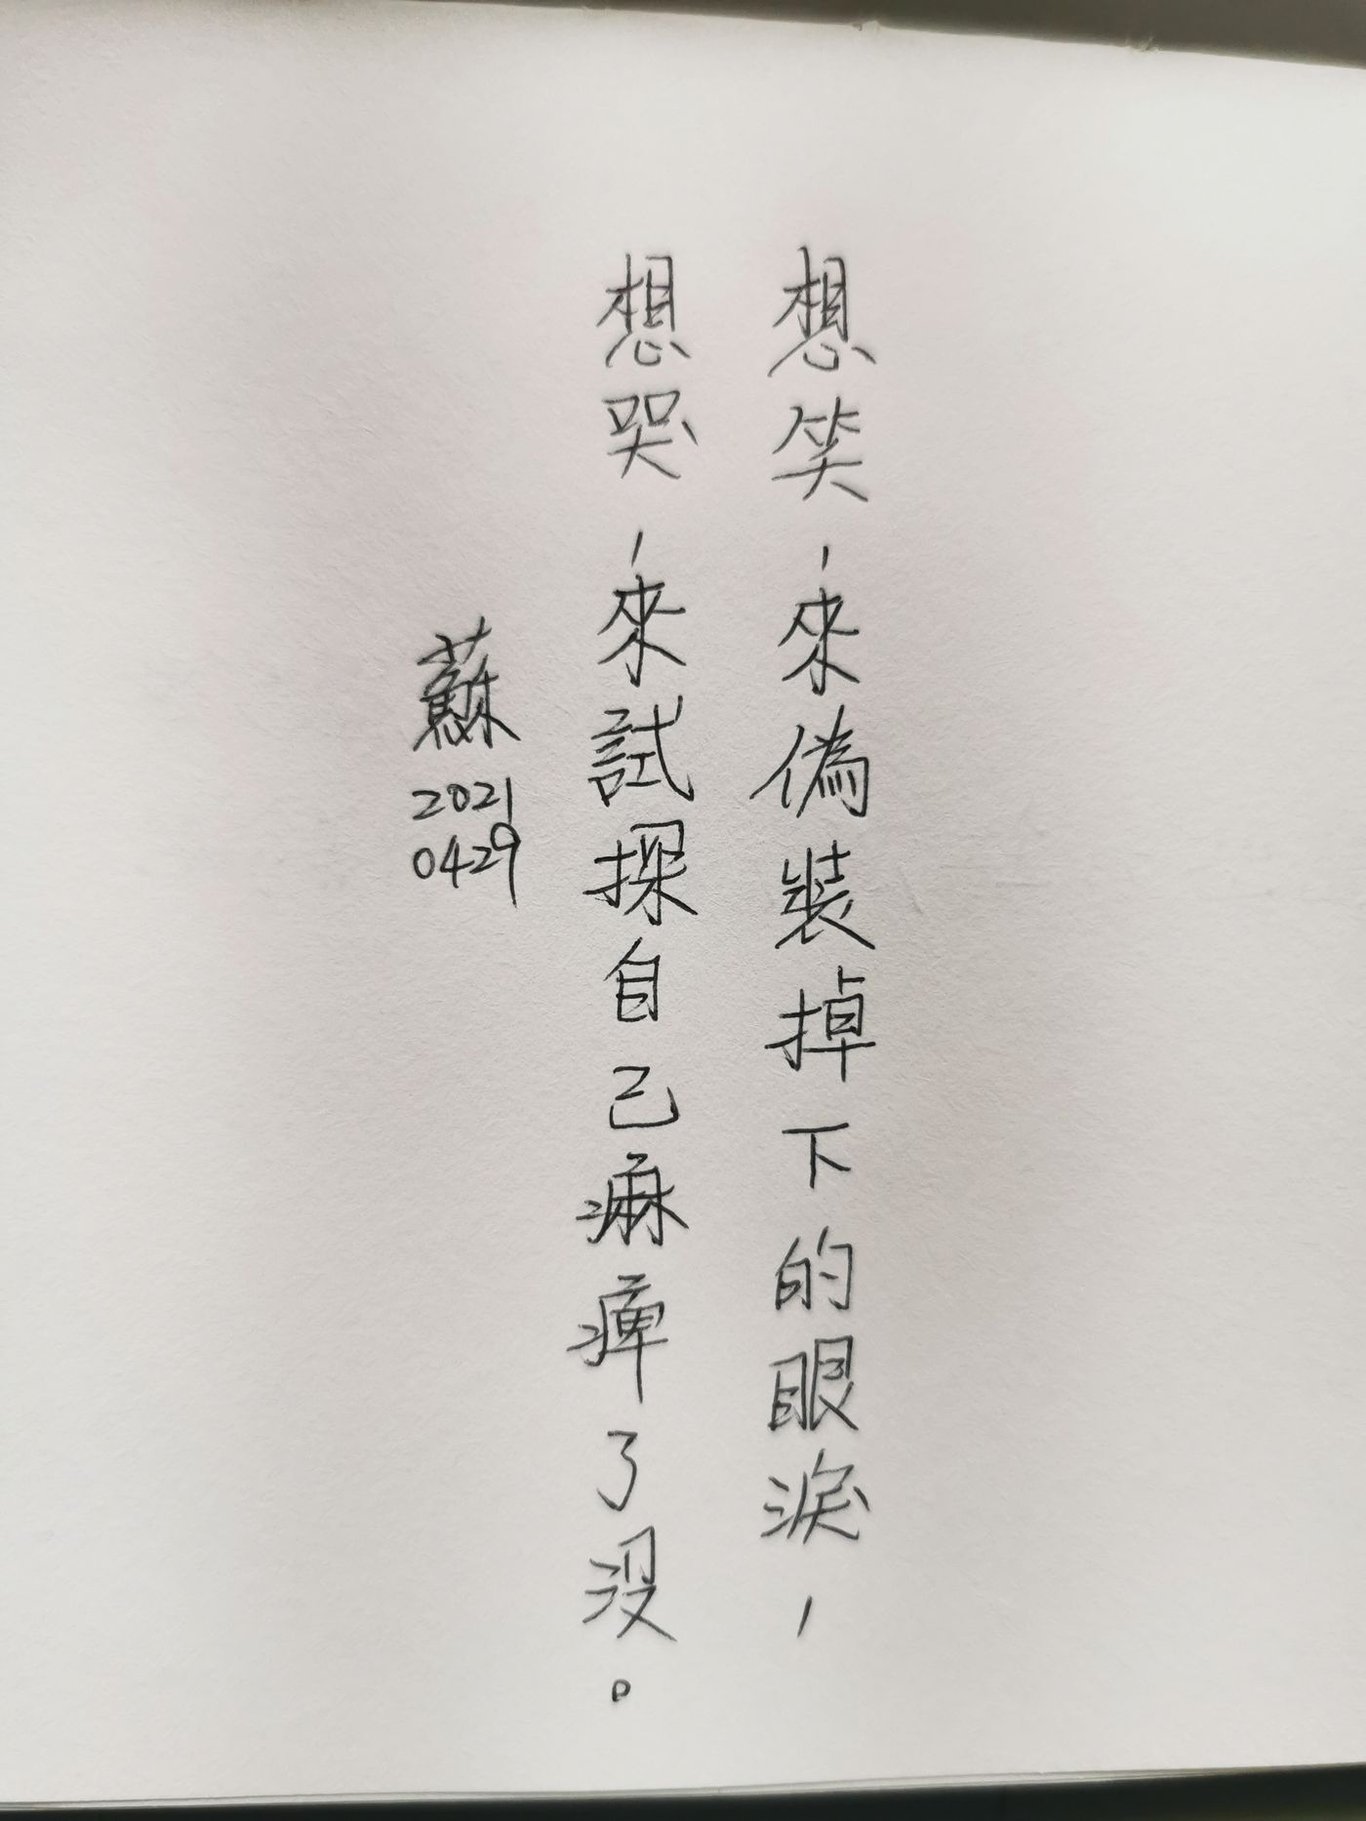 想笑,來偽裝掉下的眼淚,
想哭,來試探自己麻痺了沒。
蘇
2021
0429